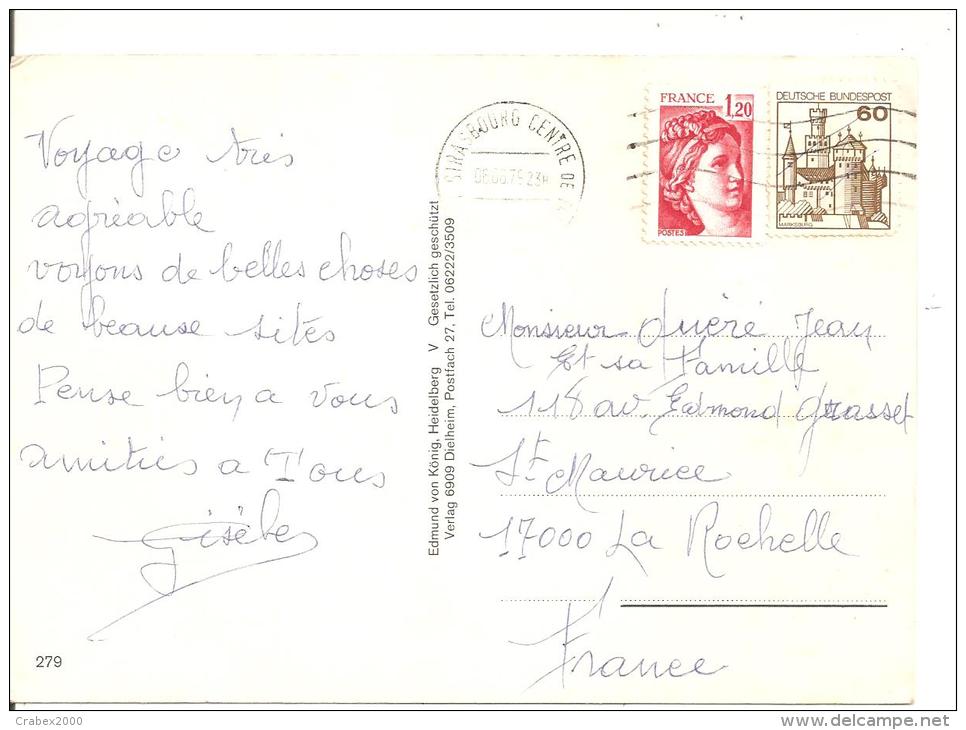 Voyage très
agréable
voyons de belles choses
de beause sites
Pense bien a vous
amitiés a Tous
Gisèle
279
Edmund von König, Heidelberg V Gesetzlich geschützt
Verlag 6909 Dielheim, Postfach 27, Tel. 06222/3509
STRASBOURG CENTRE DE
23H
FRANCE
1,20
POSTES
DEUTSCHE BUNDESPOST
60
MARKSBURG
Monsieur Quéré Jean
Et sa Famille
118 av Edmond Grasset
St Maurice
17000 La Rochelle
France
Crabex2000
www.delcampe.net